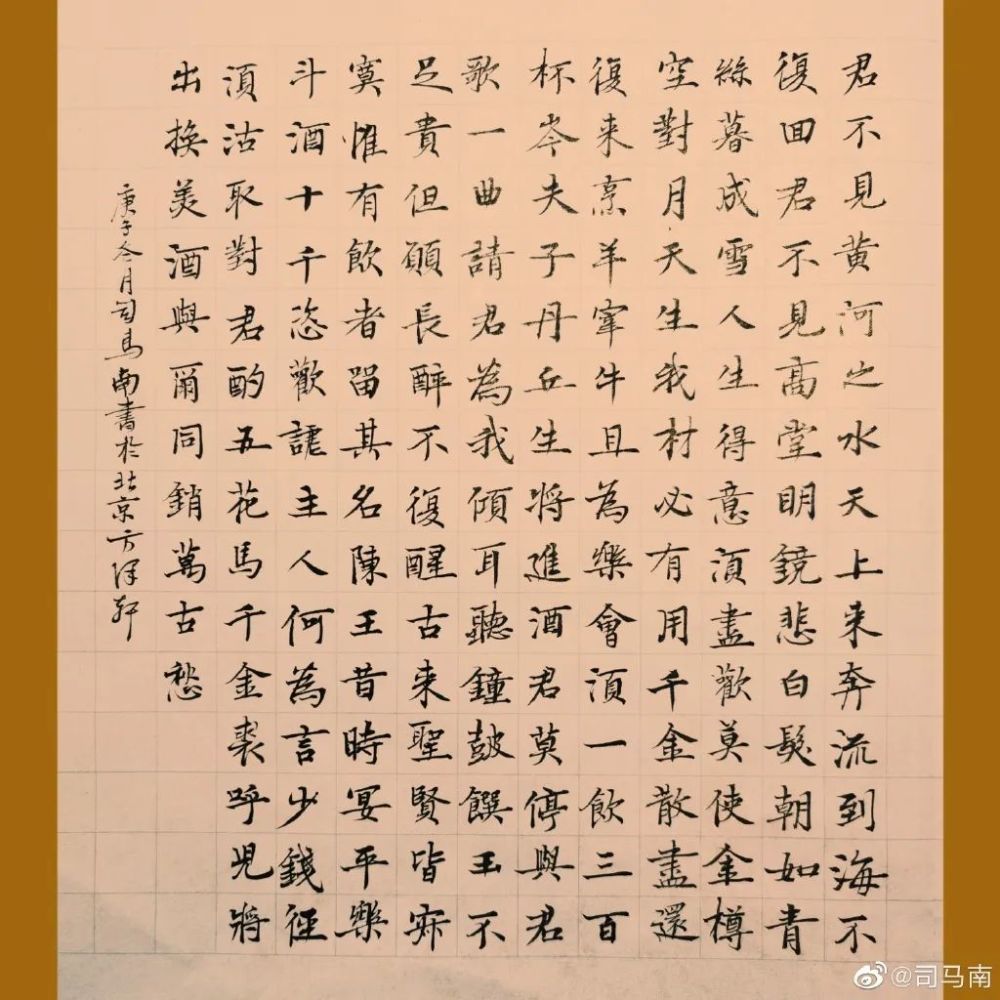 君不見黄河之水天上来奔流到海不
復囬君不見高堂明鏡悲白髮朝如青
絲暮成雪人生得意湏盡歡莫使金樽
空對月天生我材必有用千金散盡還
復来烹羊宰牛且為樂會湏一飲三百
杯岑夫子丹丘生將進酒君莫停與君
歌一曲請君為我傾耳聽鐘鼓饌玉不
足貴但願長醉不復醒古来聖賢皆寂
寞惟有飲者留其名陳王昔時宴平樂
斗酒十千恣歡謔主人何為言少錢徑
湏沽取對君酌五花馬千金裘呼児將
出換美酒與爾同銷萬古愁
庚子冬月司馬南書於北京方泽軒
@司马南